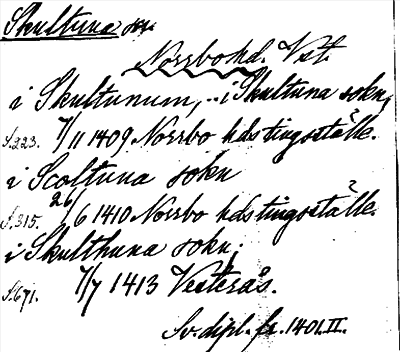 Skultuna sn.
Norrbo hd. Vst.
i Skultunum, .. i Skultuna sokn,
S.223. 7/11 1409 Norrbo hds tingsställe.
i Scoltuna sokn
S.315. 26/6 1410 Norrbo hds tingsställe.
i Skulthuna sokn;
S.671. 7/7 1413 Vesterås.
Sv. dipl. fr. 1401. II.